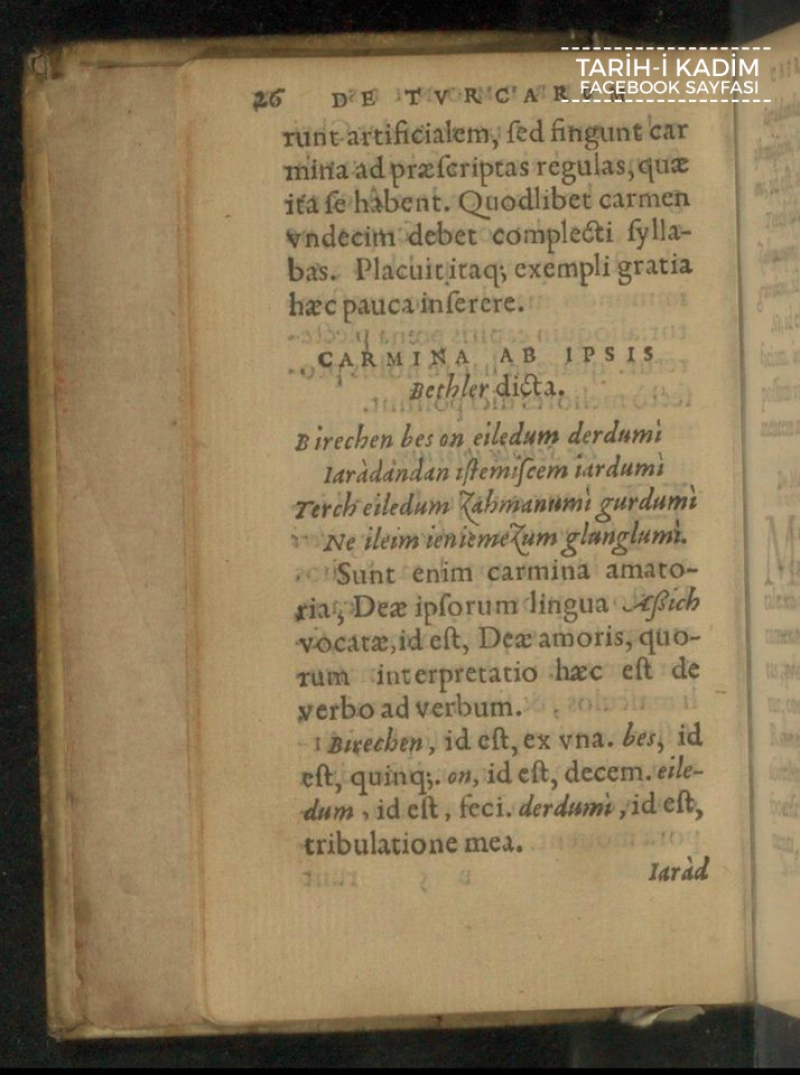 TARİH-İ KADİM
FACEBOOK SAYFASI
26 DE TVRCARVM
runt artificialem, ſed fingunt car
mina ad præſcriptas regulas, quæ
ita ſe habent. Quodlibet carmen
vndecim debet complecti ſylla-
bas. Placuit itaq; exempli gratia
hæc pauca inſerere.
CARMINA AB IPSIS
Bethler dicta.
Birechen bes on eiledum derdumi
Iaràdandan iſtemiſcem iardumi
Terch eiledum Zahmanumi gurdumi
Ne ileim ienitemeZum glunglumi.
Sunt enim carmina amato-
ria, Deæ ipſorum lingua Aſſich
vocatæ, id eſt, Deæ amoris, quo-
rum interpretatio hæc eſt de
verbo ad verbum.
Birechen, id eſt, ex vna. bes, id
eſt, quinq;. on, id eſt, decem. eile-
dum, id eſt, feci. derdumi, id eſt,
tribulatione mea.
Iaràd